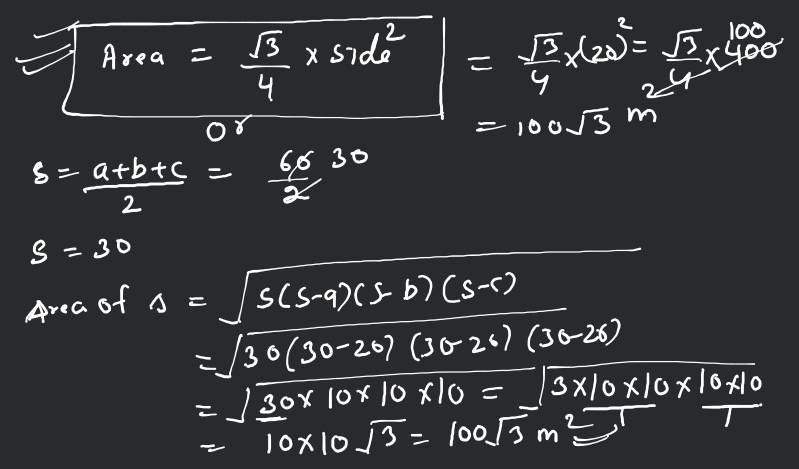 Area = √3/4 x side² = √3/4 x (20)² = √3/4 x 400 100
= 100√3 m²
or
s = a+b+c/2 = 60/2 30
s = 30
Area of s = √s(s-a)(s-b)(s-c)
= √30(30-20)(30-20)(30-20)
= √30x10x10x10 = √3x10x10x10x10
= 10x10√3 = 100√3 m²